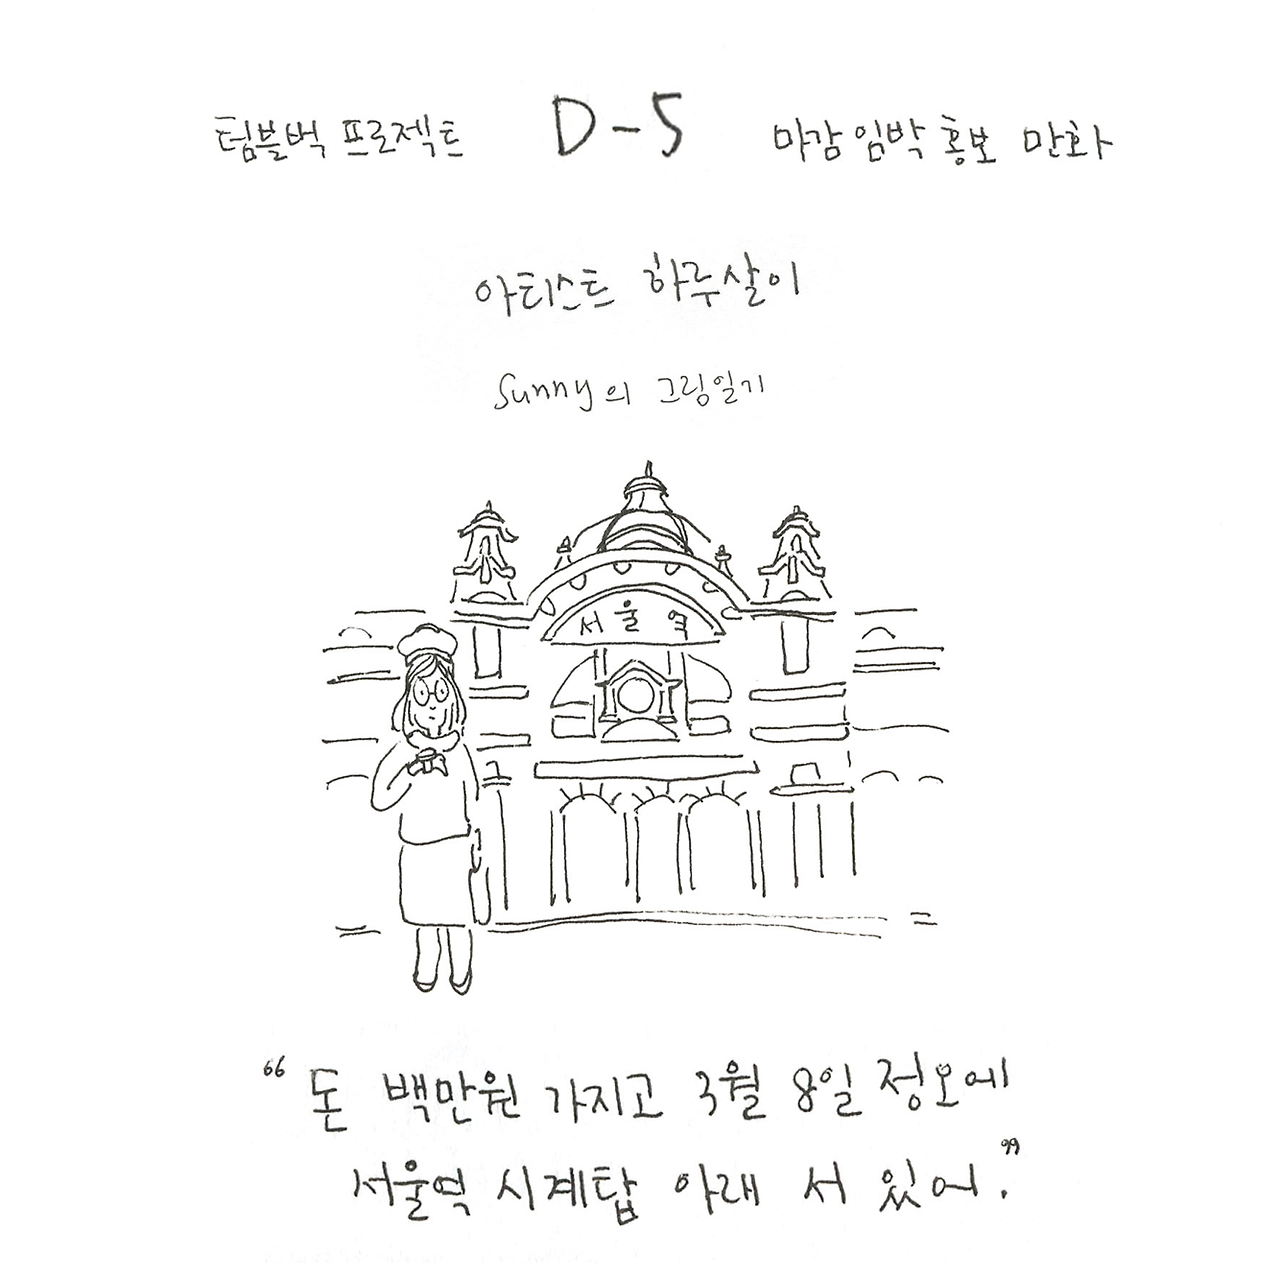 텀블벅 프로젝트 D-5 마감 임박 홍보 만화
아티스트 하루살이
Sunny의 그림일기
서울역
“돈 백만원 가지고 3월 8일 정오에
서울역 시계탑 아래 서 있어.”